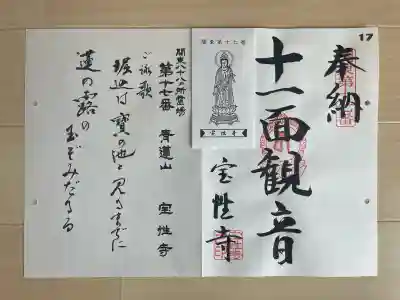 17
奉納
十一面観音
宝性寺
関東第十七番
宝性寺
関東八十八ヶ所霊場
第十七番 青蓮山 宝性寺
ご詠歌
堀込は 寳の池と 見るまでに
蓮の露の 玉ぞみだるる